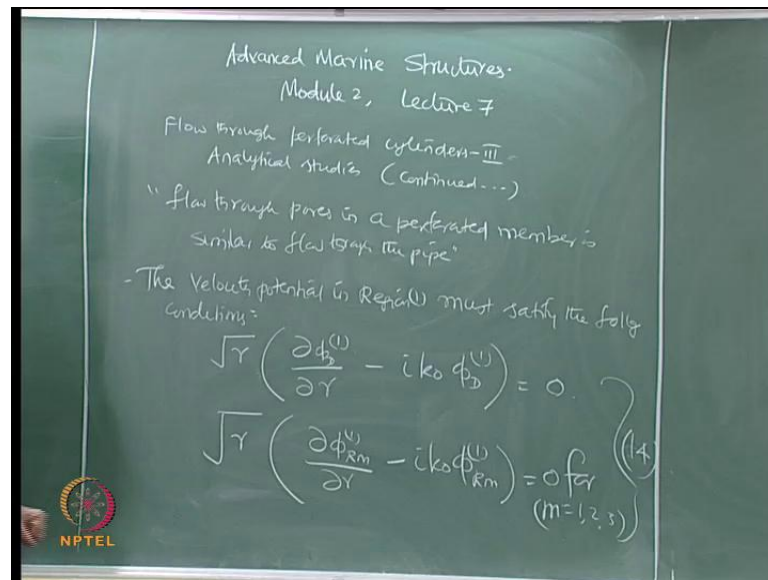 Advanced Marine Structures.
Module 2, Lecture 7
Flow through perforated cylinders - III
Analytical studies (Continued...)
"flow through pores in a perforated member is
similar to flow through the pipe"
- The Velocity potential in Region(1) must satisfy the follg
conditions:
√r ( ∂ϕ_D^(1) / ∂r - i k₀ ϕ_D^(1) ) = 0.
√r ( ∂ϕ_Rm^(1) / ∂r - i k₀ ϕ_Rm^(1) ) = 0 for
(m=1,2,3)
(14)
NPTEL